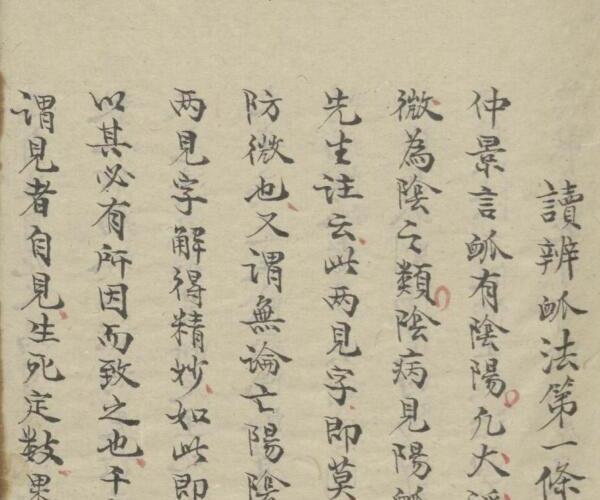 讀辨脈法第一條
仲景言脈有陰陽凡大浮
微為陰之類陰病見陽脈
先生註云此两見字即莫
防微也又謂無論亡陽陰
两見字解得精妙如此即
以其必有所因而致之也
謂見者自見生死定数